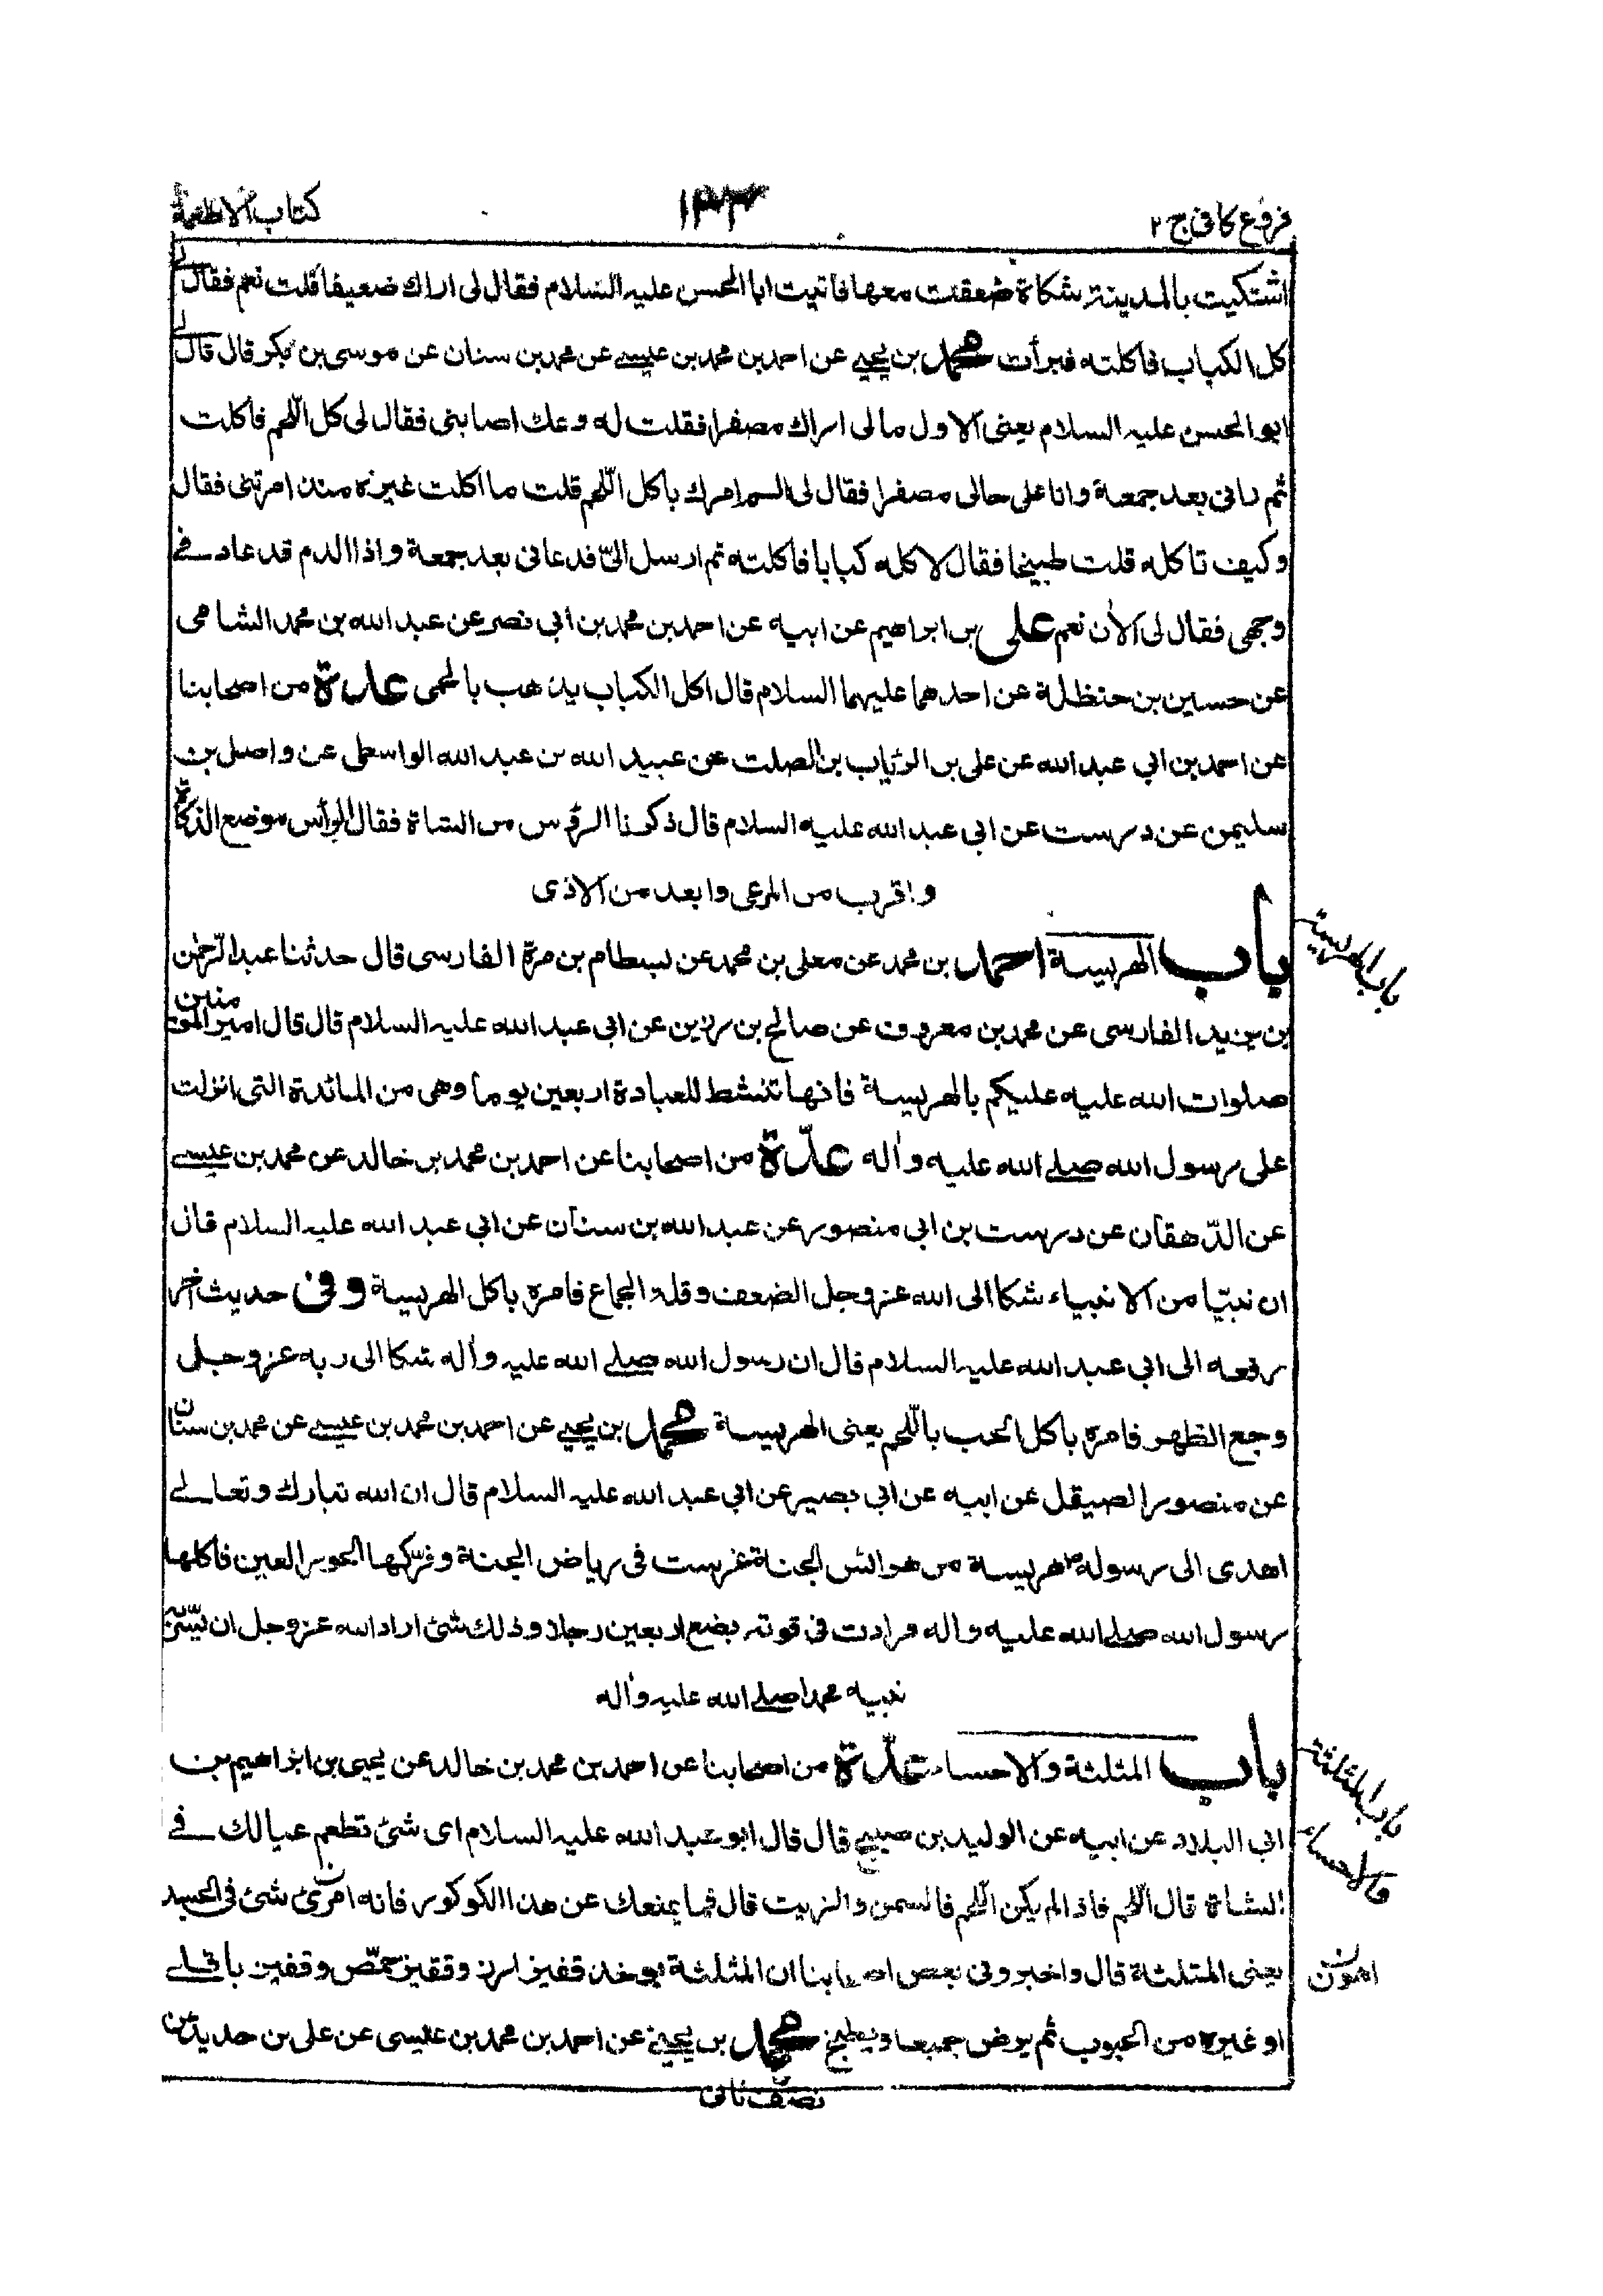 فروع كافى ج ٢
كتاب الاطعمة
اشتكيت بالمدينة شكاة ضعفت معها فاتيت ابا الحسن عليه السلام فقال لى اراك ضعيفا قلت نعم فقال لى
كل الكباب فاكلته فبرأت محمد بن يحيى عن احمد بن محمد بن عيسى عن محمد بن سنان عن موسى بن بكر قال قال لى
ابو الحسن عليه السلام يعنى الاول مالى اراك مصفرا فقلت له وعك اصابنى فقال لى كل اللحم فاكلت
ثم رانى بعد جمعة وانا على حالى مصفرا فقال لى الم امرك باكل اللحم قلت ما اكلت غيره منذ امرتنى فقال
وكيف تاكله قلت طبيخا فقال لا كله كبابا فاكلته ثم ارسل الىّ فدعانى بعد جمعة واذا الدم قد عاد فى
وجهى فقال لى الان نعم على بن ابراهيم عن ابيه عن احمد بن محمد بن ابى نصر عن عبد الله بن محمد الشامى
عن حسين بن حنظلة عن احدهما عليهما السلام قال اكل الكباب يذهب بالحمى عدة من اصحابنا
عن احمد بن ابى عبد الله عن على بن الريّاب بن الصلت عن عبيد الله بن عبد الله الواسطى عن واصل بن
سليمن عن درست عن ابى عبد الله عليه السلام قال ذكرنا الرؤس من الشاة فقال الرأس موضع الذكاة
واقرب من المرعى وابعد من الاذى
باب الهريسة احمد بن محمد عن معلى بن محمد عن بسطام بن مرة الفارسى قال حدثنا عبد الرّحمٰن
بن يزيد الفارسى عن محمد بن معروف عن صالح بن رزين عن ابى عبد الله عليه السلام قال قال امير المؤمنين
صلوات الله عليه عليكم بالهريسة فانها تنشط للعبادة اربعين يوما وهى من المائدة التى انزلت
على رسول الله صلى الله عليه واله عدّة من اصحابنا عن احمد بن محمد بن خالد عن محمد بن عيسى
عن الدّهقان عن درست بن ابى منصور عن عبد الله بن سنان عن ابى عبد الله عليه السلام قال
ان نبيّا من الانبياء شكا الى الله عز وجل الضعف وقلة الجماع فامره باكل الهريسة وفى حديث اخر
رفعه الى ابى عبد الله عليه السلام قال ان رسول الله صلى الله عليه واله شكا الى ربه عز وجل
وجع الظهر فامره باكل الحب باللّحم يعنى الهريسة محمد بن يحيى عن احمد بن محمد بن عيسى عن محمد بن سنان
عن منصور الصيقل عن ابيه عن ابى بصير عن ابى عبد الله عليه السلام قال ان الله تبارك وتعالى
اهدى الى رسوله ص هريسة من هرائس الجنة غرست فى رياض الجنة وفرّكها الحور العين فاكلها
رسول الله صلى الله عليه واله فزادت فى قوته بضع اربعين رجلا وذلك شئ اراد الله عز وجل ان يسّر
نبيه محمدا صلى الله عليه واله
باب المثلثة والاحساء عدّة من اصحابنا عن احمد بن محمد بن خالد عن يحيى بن ابراهيم بن
ابى البلاد عن ابيه عن الوليد بن صبيح قال قال ابو عبد الله عليه السلام اى شئ تطعم عيالك فى
الشتاة قال اللّحم فاذا لم يكن اللّحم فالسمن والزيت قال فما يمنعك عن هذا الكوكور فانه امرئ شئ فى الجسد
يعنى المثلثة قال واخبرونى بعض اصحابنا ان المثلثة يوخذ قفيز ارز وقفيز حمّص وقفيز باقلى
او غيره من الحبوب ثم يرض جميعا ويطبخ محمد بن يحيى عن احمد بن محمد بن عيسى عن على بن حديد عن
نصف ثانى
باب الهريسة
باب المثلثة
والاحساء
اهون ن